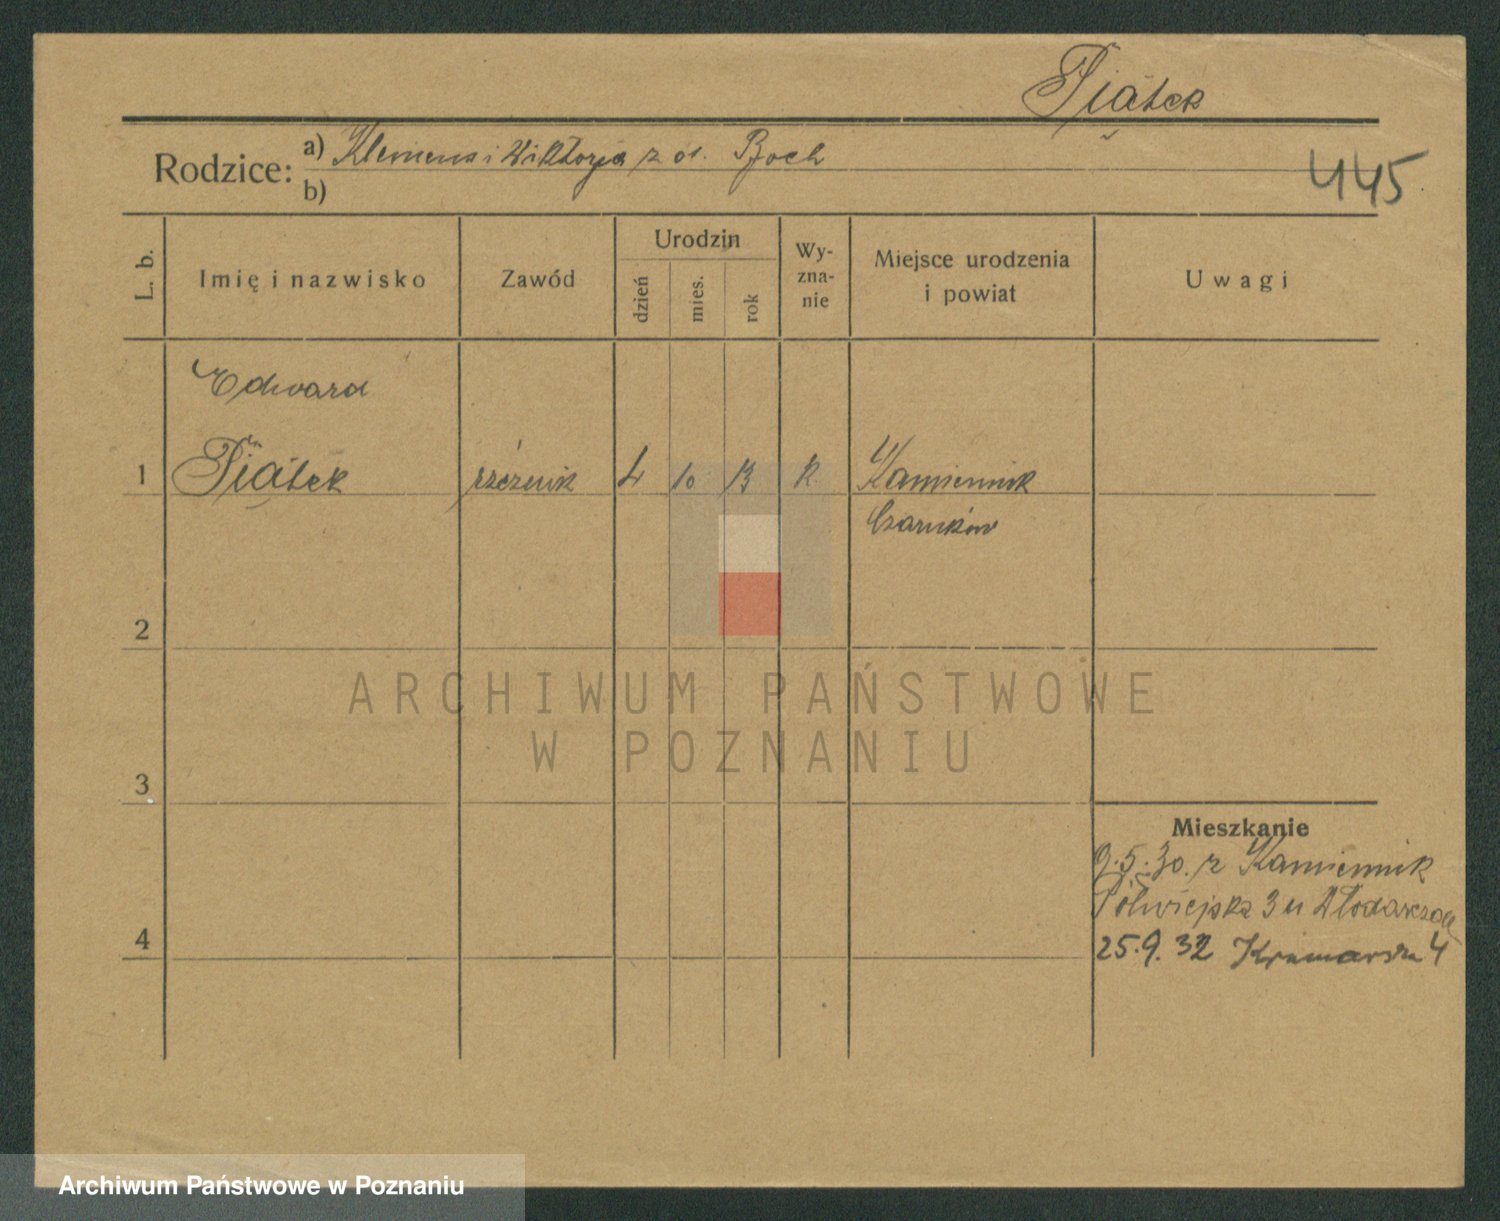 Piątek
Rodzice: a) Klemens i Wiktorja z d.
b)
445
L. b.
Imię i nazwisko
Zawód
Urodzin
dzień
mies.
rok
Wy-
zna-
nie
Miejsce urodzenia
i powiat
Uwagi
Edward
1 Piątek rzeźnik 4 10 13 k. Kamiennik
Czarnków
2
3
4
Mieszkanie
9.5.30. z Kamiennik
Półwiejska 3 u
25.9.32 Kramarska 4
ARCHIWUM PAŃSTWOWE
W POZNANIU
Archiwum Państwowe w Poznaniu